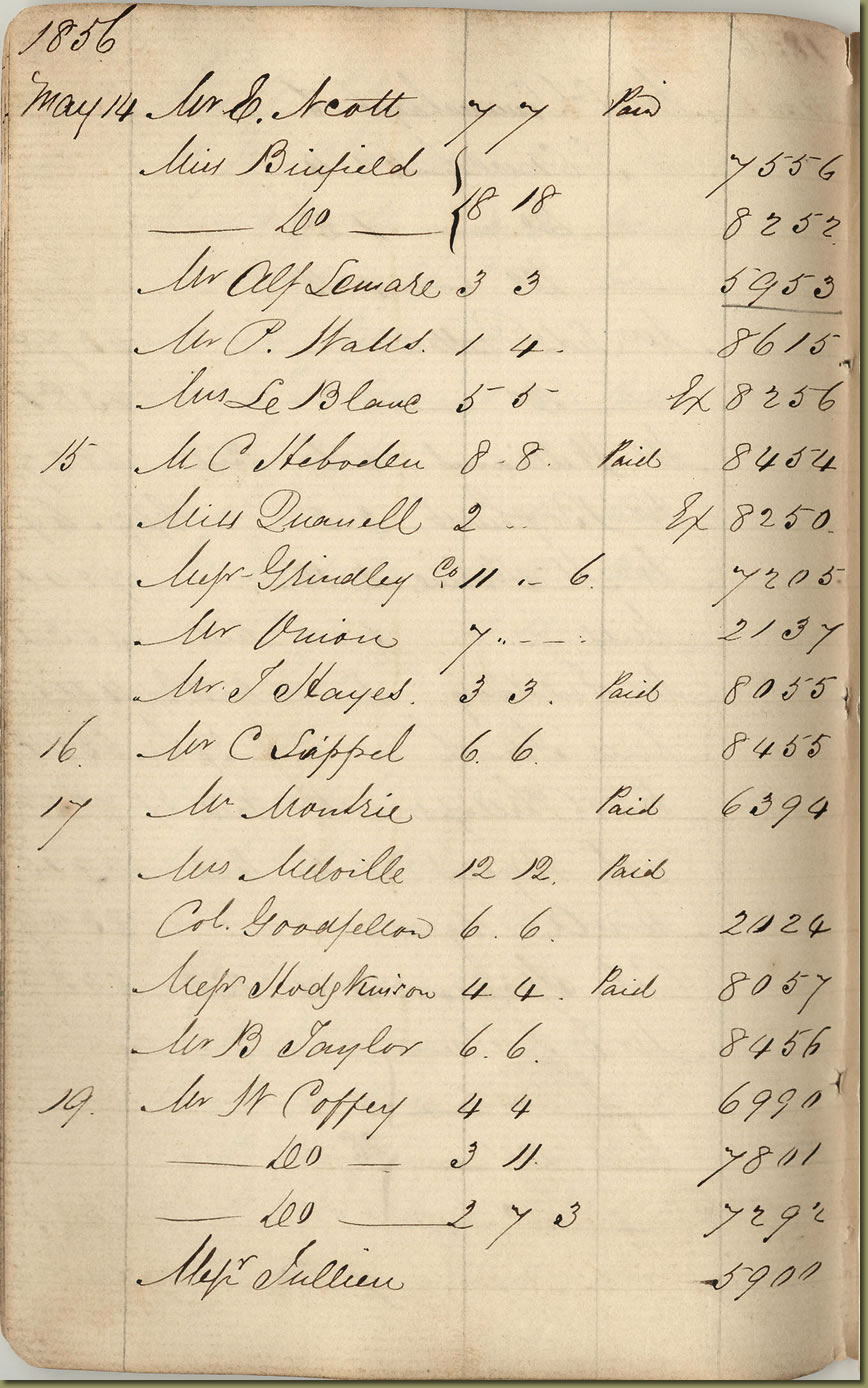 1856
May 14 Mr E. Scott 7 7 Paid
Miss Binfield 7556
— Do — } 18 18 8252
Mr Alf Lemare 3 3 5953
Mr P. Watts. 1 4 . 8615
Mrs Le Blanc 5 5 Ex 8256
15 M C Heboden 8 . 8 . Paid 8454
Miss Quanell 2 .. Ex 8250
Messr Grindley Co. 11 .- 6. 7205
Mr Onion 7 ..—. 2137
Mr. T Hayes. 3 3 . Paid 8055
16. Mr C Sippel 6. 6. 8455
17 Mr Montrie Paid 6394
Mrs Melville 12 12. Paid
Col. Goodfellow 6 . 6 . 2024
Messr Hodgkinson 4 4 . Paid 8057
Mr B Taylor 6. 6. 8456
19. Mr W Coffey 4 4 6990
— Do — 3 11. 7801
— Do — 2 7 3 7292
Messr Jullien 5900